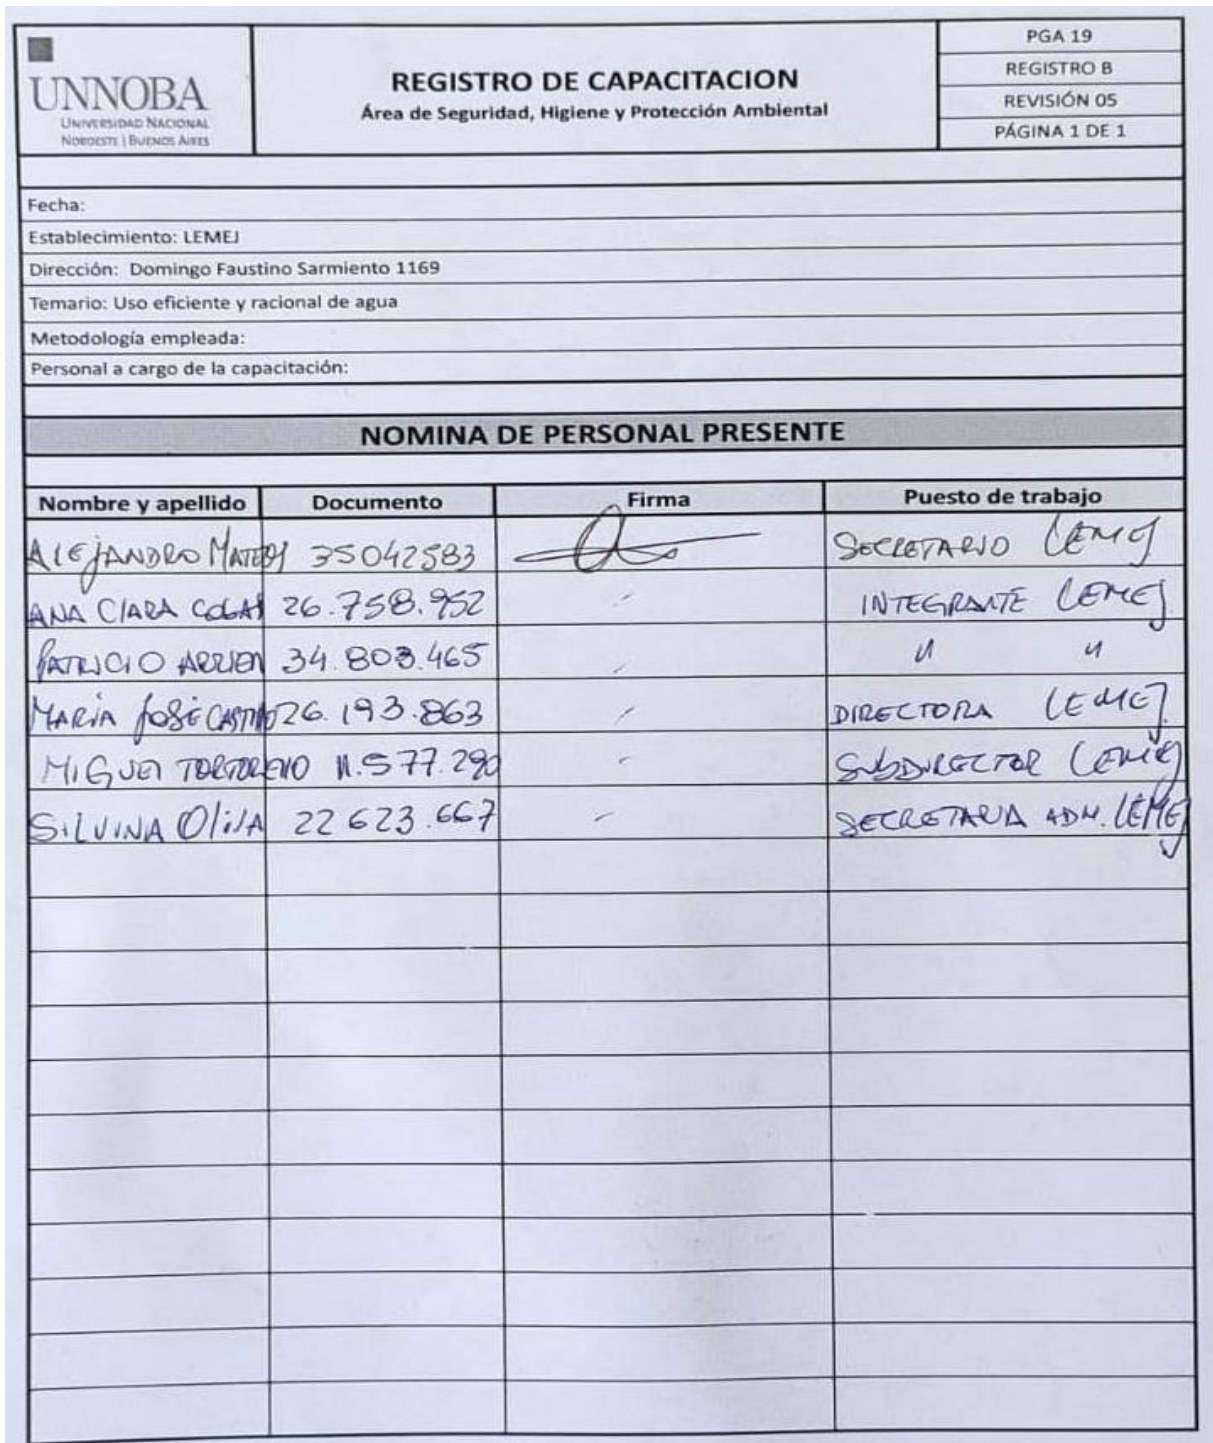 UNNOBA
UNIVERSIDAD NACIONAL
NOROESTE | BUENOS AIRES
REGISTRO DE CAPACITACION
Área de Seguridad, Higiene y Protección Ambiental
PGA 19
REGISTRO B
REVISIÓN 05
PÁGINA 1 DE 1
Fecha:
Establecimiento: LEMEJ
Dirección: Domingo Faustino Sarmiento 1169
Temario: Uso eficiente y racional de agua
Metodología empleada:
Personal a cargo de la capacitación:
NOMINA DE PERSONAL PRESENTE
Nombre y apellido Documento Firma Puesto de trabajo
ALEJANDRO MATEOS 35042583 SECRETARIO LEMEJ
ANA CLARA 26.758.952 INTEGRANTE LEMEJ
PATRICIO ARRIEN 34.803.465 " "
MARÍA JOSÉ CASTIÑO 26.193.863 DIRECTORA LEMEJ
MIGUEL 11.577.290 SUBDIRECTOR LEMEJ
SILVINA OLIVA 22623.667 SECRETARIA ADM. LEMEJ